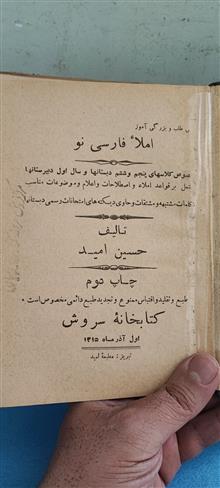 طلب و بزرگی آموز
املاء فارسی نو
کلاسهای پنجم وششم دبستانها و سال اول دبیرستانها
بر قواعد املاء و اصطلاحات و اعلام و موضوعات مناسب
کلمات متشبهه و مشتقات و حاوی دیکته‌های امتحانات رسمی دبستانها
تألیف
حسین امید
چاپ دوم
طبع و تقلید و اقتباس ممنوع و تجدید طبع دائمی مخصوص است به
کتابخانهٔ سروش
اول آذر ماه ۱۳۱۵
تبریز : مطبعهٔ امید